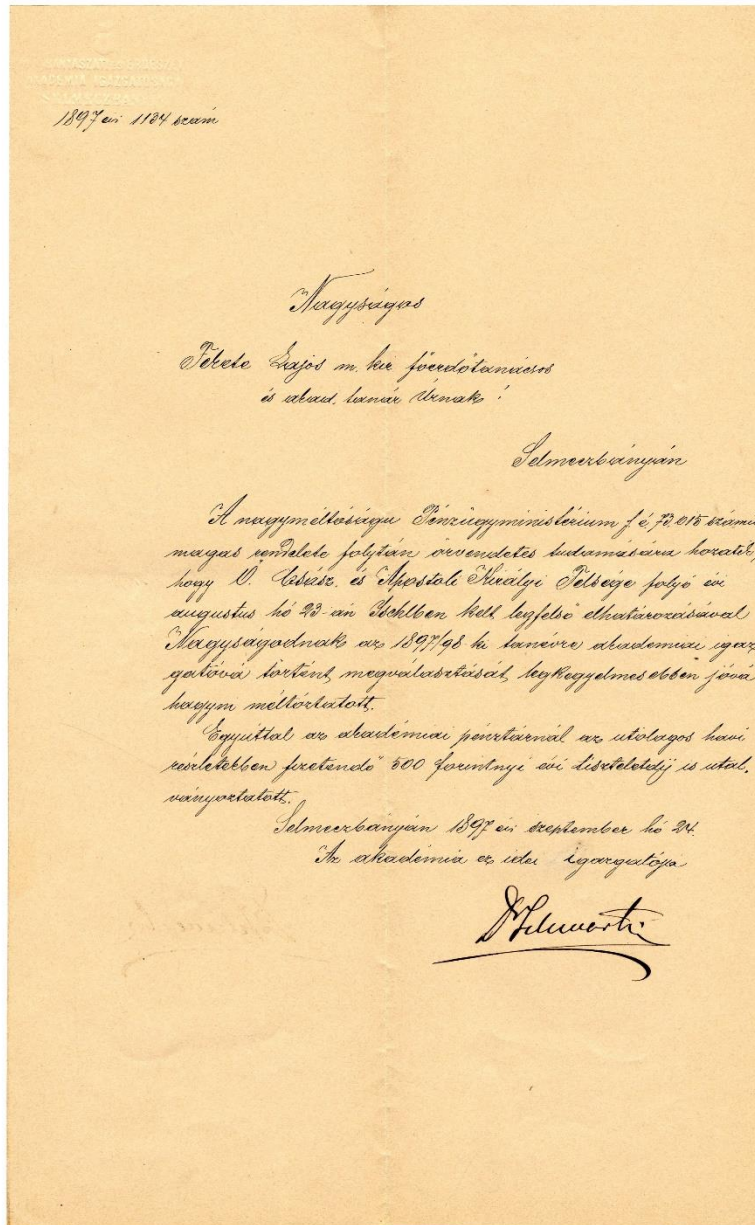 BÁNYÁSZATI ÉS ERDÉSZETI
AKADÉMIA IGAZGATÓSÁGA
SELMECZBÁNYA
1897 évi 1134 szám
Nagyságos
Fekete Lajos m. kir főerdőtanácsos
és akad. tanár Úrnak!
Selmeczbányán
A nagyméltóságu Pénzügyministérium f. é. 73.015 számu
magas rendelete folytán örvendetes tudomására hozatik,
hogy Ő Csász és Apostoli Királyi Felsége folyó évi
augusztus hó 23-án Ischlben kelt legfelső elhatározásával
Nagyságodnak az 1897/98 ki tanévre akadémiai igaz
gatóvá történt megválasztását legkegyelmesebben jóvá
hagyni méltóztatott.
Egyúttal az akadémiai pénztárnál az utólagos havi
részletekben fizetendő 500 forintnyi évi tiszteletdíj is utal.
ványoztatott.
Selmeczbányán 1897 évi szeptember hó 24.
Az akadémia ez idei igazgatója
Dr Schwartz